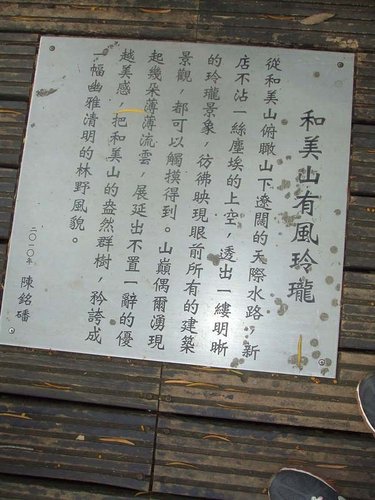 和美山有風玲瓏
從和美山俯瞰山下遼闊的天際水路，新
店不沾一絲塵埃的上空，透出一縷明晰
的玲瓏景象，彷彿映現眼前所有的建築
景觀，都可以觸摸得到。山巔偶爾湧現
起幾朵薄薄流雲，展延出不置一辭的優
越美感，把和美山的盎然群樹，矜誇成
一幅幽雅清明的林野風貌。
二〇二〇年 陳銘磻